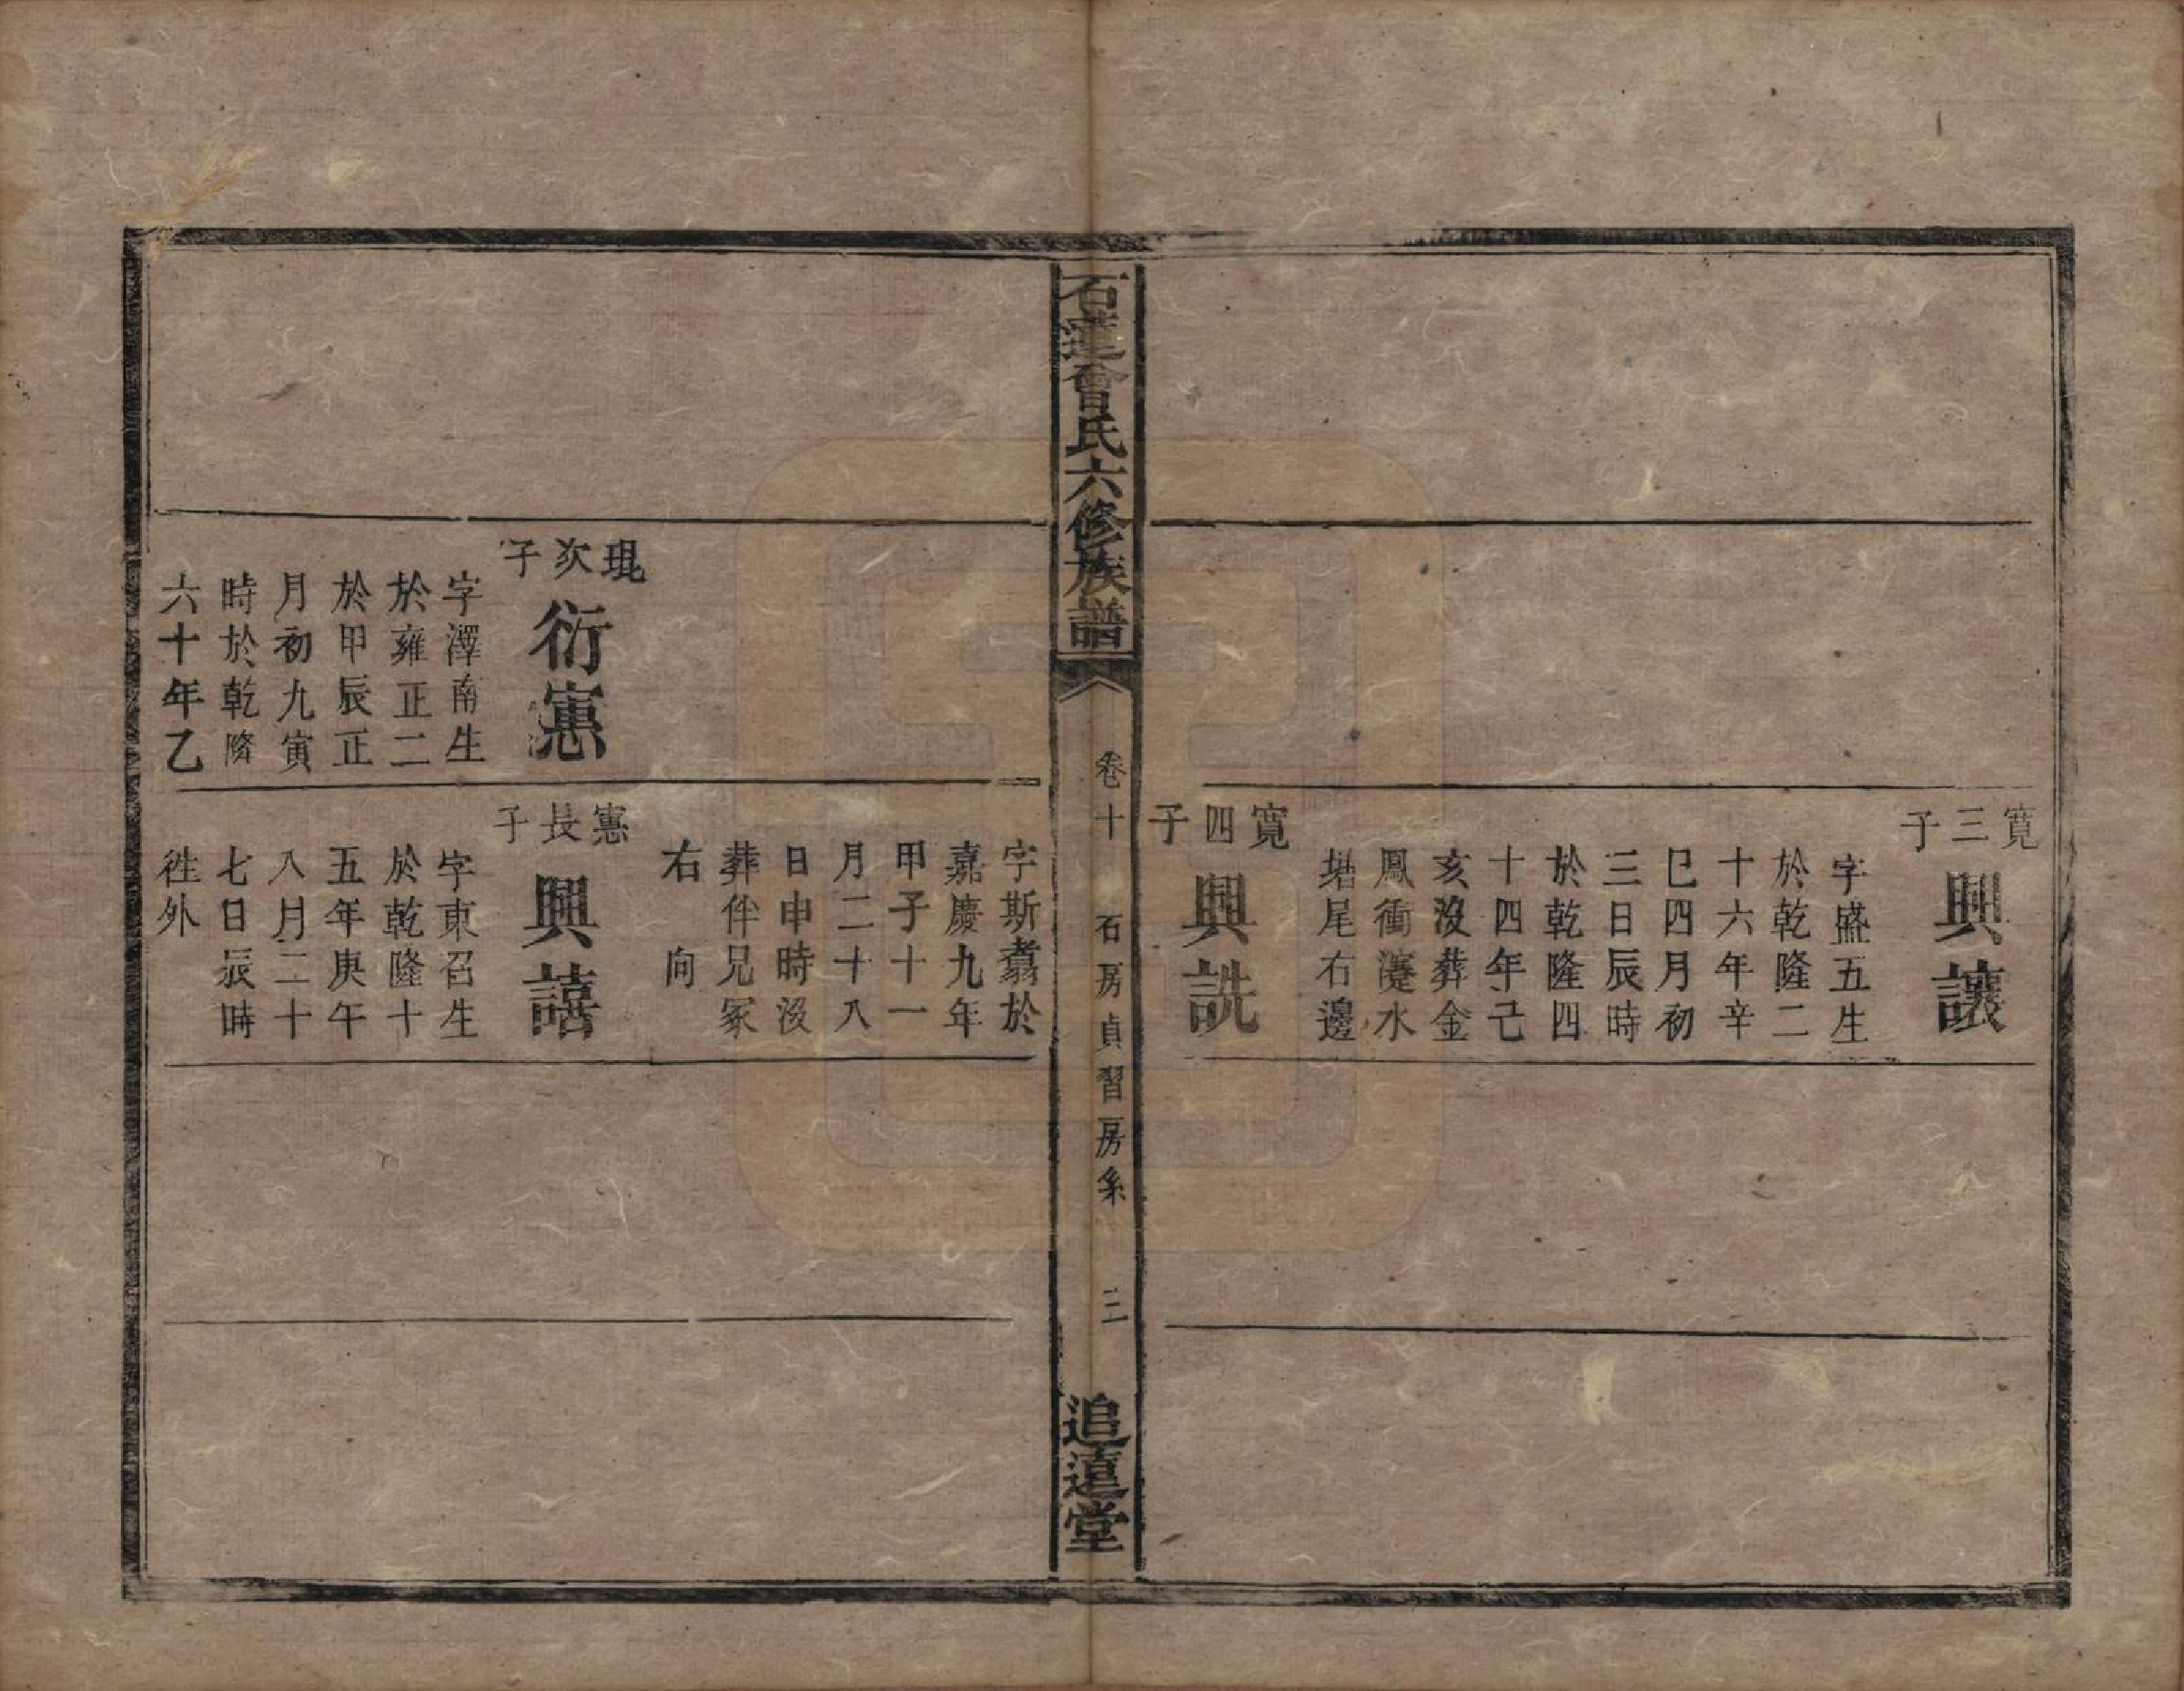 寬三子
興讓
字盛五生
於乾隆二
十六年辛
巳四月初
三日辰時
於乾隆四
十四年己
亥沒葬金
鳳衝灋水
堦尾右邊
寬四子
興詵
石蓮曾氏六修族譜
卷十
石房貞習房系
三
追遠堂
字斯翥於
嘉慶九年
甲子十一
月二十八
日申時沒
葬伴兄冢
右向
琨次子
衍憲
字澤南生
於雍正二
於甲辰正
月初九寅
時於乾隆
六十年乙
憲長子
興譆
字東召生
於乾隆十
五年庚午
八月二十
七日辰時
徃外